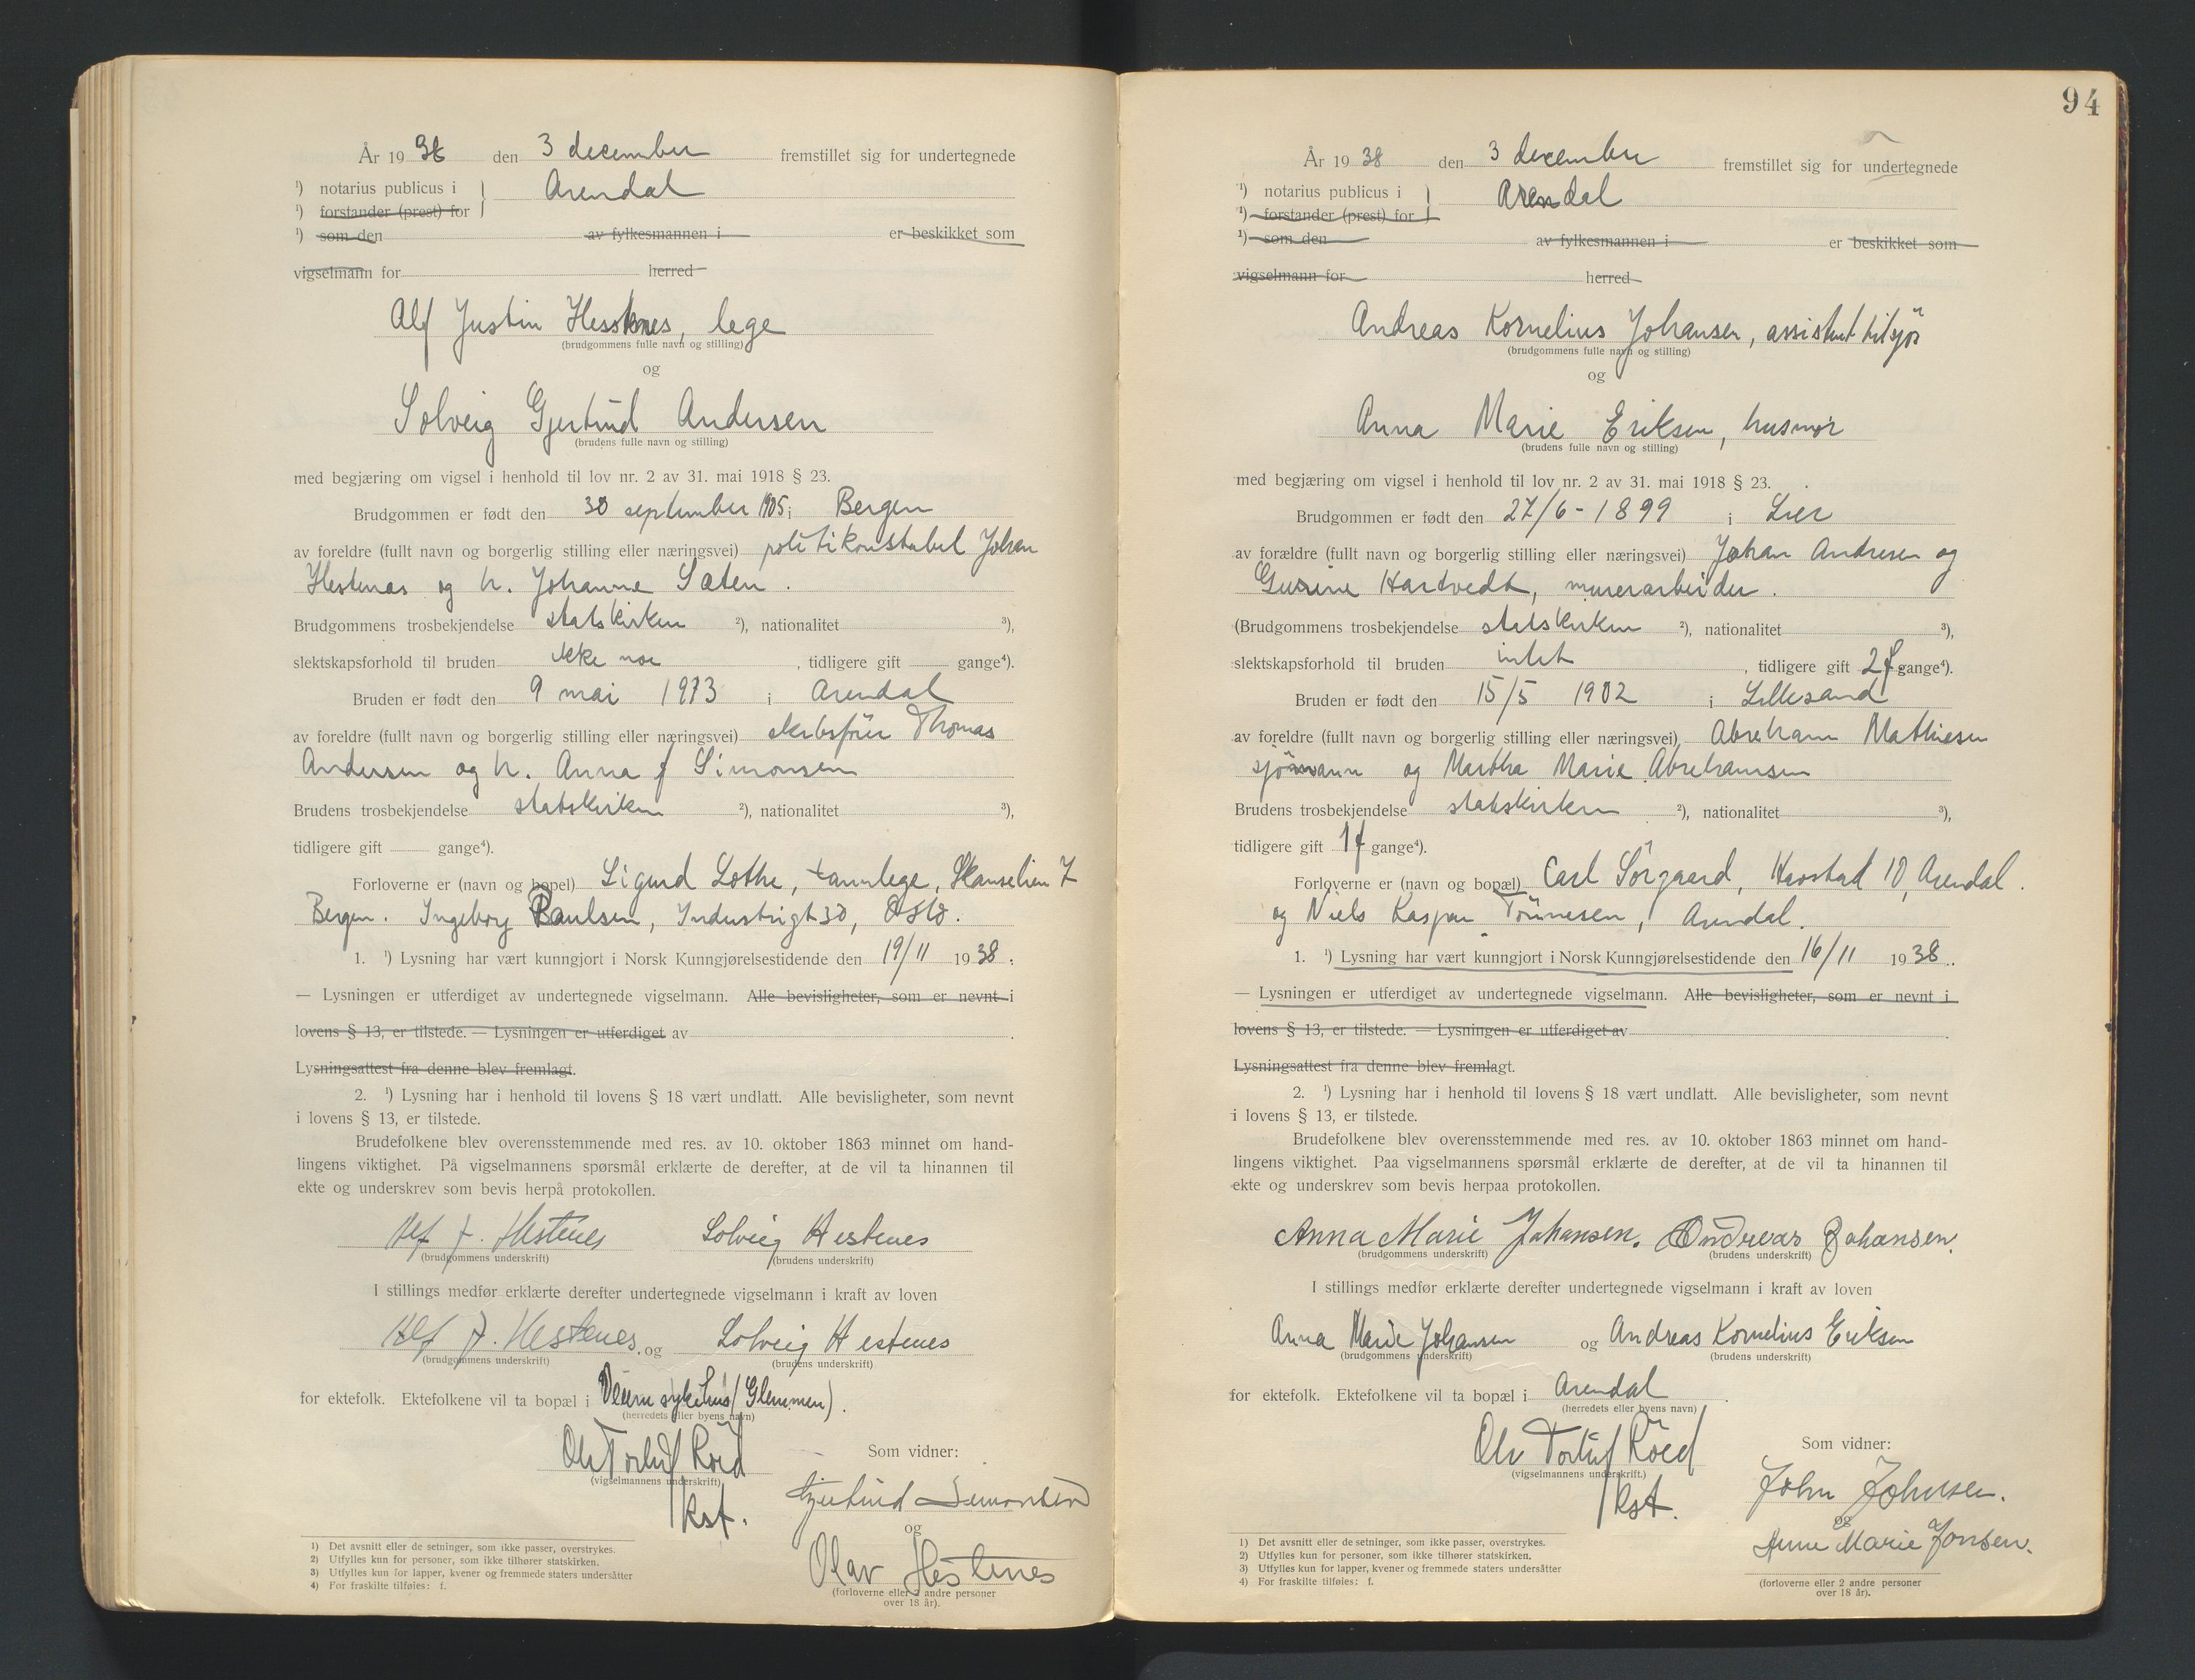 År 19 38 den 3 december fremstillet sig for undertegnede
¹) notarius publicus i } Arendal
¹) forstander (prest) for
¹) som den av fylkesmannen i er beskikket som
vigselmann for herred
Alf Justin Hestenes, lege
(brudgommens fulle navn og stilling)
og
Solveig Gjertrud Andersen
(brudens fulle navn og stilling)
med begjæring om vigsel i henhold til lov nr. 2 av 31. mai 1918 § 23.
Brudgommen er født den 30 september 1905 i Bergen
av foreldre (fullt navn og borgerlig stilling eller næringsvei) politikonstabel Johan
Hestenas og h. Johanne Sæten .
Brudgommens trosbekjendelse statskirken ²), nationalitet ³),
slektskapsforhold til bruden ikke noe , tidligere gift gange⁴).
Bruden er født den 9 mai 1913 i Arendal
av foreldre (fullt navn og borgerlig stilling eller næringsvei) skibsfører Thomas
Andersen og h. Anna f Simonsen
Brudens trosbekjendelse statskirken ²), nationalitet ³),
tidligere gift gange⁴).
Forloverne er (navn og bopel) Sigurd Lothe, tannlege, Skanselien 7
Bergen. Ingeborg Paulsen, Industrigt 30, Oslo.
1. ¹) Lysning har vært kunngjort i Norsk Kunngjørelsestidende den 19/11 19 38 .
— Lysningen er utferdiget av undertegnede vigselmann. Alle bevisligheter, som er nevnt i
lovens § 13, er tilstede. — Lysningen er utferdiget av .
Lysningsattest fra denne blev fremlagt.
2. ¹) Lysning har i henhold til lovens § 18 vært undlatt. Alle bevisligheter, som nevnt
i lovens § 13, er tilstede.
Brudefolkene blev overensstemmende med res. av 10. oktober 1863 minnet om hand-
lingens viktighet. På vigselmannens spørsmål erklærte de derefter, at de vil ta hinannen til
ekte og underskrev som bevis herpå protokollen.
Alf J. Hestenes Solveig Hestenes
(brudgommens underskrift) (brudens underskrift)
I stillings medfør erklærte derefter undertegnede vigselmann i kraft av loven
Alf J. Hestenes. og Solveig Hestenes
(brudgommens underskrift) (brudens underskrift)
for ektefolk. Ektefolkene vil ta bopæl i Veum sykehus (Glemmen) .
(herredets eller byens navn)
Ole Torleif Röed
(vigselmannens underskrift)
kst.
Som vidner:
Gjertrud Simonsen
og
Olav Hestenes
(forloverne eller 2 andre personer
over 18 år).
1) Det avsnitt eller de setninger, som ikke passer, overstrykes.
2) Utfylles kun for personer, som ikke tilhører statskirken.
3) Utfylles kun for lapper, kvener og fremmede staters undersåtter
4) For fraskilte tilføies: f.
94
År 19 38 den 3 december fremstillet sig for undertegnede
¹) notarius publicus i } Arendal
¹) forstander (prest) for
¹) som den av fylkesmannen i er beskikket som
vigselmann for herred
Andreas Kornelius Johansen, assistent tilsjös
(brudgommens fulle navn og stilling)
og
Anna Marie Eriksen, husmor
(brudens fulle navn og stilling)
med begjæring om vigsel i henhold til lov nr. 2 av 31. mai 1918 § 23.
Brudgommen er født den 27/6 - 1899 i Lier
av forældre (fullt navn og borgerlig stilling eller næringsvei) Johan Andresen og
Gurine Hartvedt, murerarbeider .
(Brudgommens trosbekjendelse statskirken ²), nationalitet ³),
slektskapsforhold til bruden intet , tidligere gift 2 f gange⁴).
Bruden er født den 15/5 1902 i Lillesand
av foreldre (fullt navn og borgerlig stilling eller næringsvei) Abraham Mathiesen
sjömann og Martha Marie Abrahamsen
Brudens trosbekjendelse statskirken ²), nationalitet ³),
tidligere gift 1 f gange⁴).
Forloverne er (navn og bopæl) Carl Sörgaard, Havstad 10, Arendal .
og Niels Kaspar Tönnesen, Arendal.
1. ¹) Lysning har vært kunngjort i Norsk Kunngjørelsestidende den 16/11 19 38 .
— Lysningen er utferdiget av undertegnede vigselmann. Alle bevisligheter, som er nevnt i
lovens § 13, er tilstede. — Lysningen er utferdiget av .
Lysningsattest fra denne blev fremlagt.
2. ¹) Lysning har i henhold til lovens § 18 vært undlatt. Alle bevisligheter, som nevnt
i lovens § 13, er tilstede.
Brudefolkene blev overensstemmende med res. av 10. oktober 1863 minnet om hand-
lingens viktighet. Paa vigselmannens spørsmål erklærte de derefter, at de vil ta hinannen til
ekte og underskrev som bevis herpaa protokollen.
Anna Marie Johansen. Andreas Johansen.
(brudgommens underskrift) (brudens underskrift)
I stillings medfør erklærte derefter undertegnede vigselmann i kraft av loven
Anna Marie Johansen og Andreas Kornelius Eriksen
(brudgommens underskrift) (brudens underskrift)
for ektefolk. Ektefolkene vil ta bopæl i Arendal .
(herredets eller byens navn)
Ole Torleif Röed
(vigselmannens underskrift.)
kst.
Som vidner:
John Johnsen.
og
Anne Marie Jonsen.
(forloverne eller 2 andre personer
over 18 år).
1) Det avsnitt eller de setninger, som ikke passer, overstrykes.
2) Utfylles kun for personer, som ikke tilhører statskirken.
3) Utfylles kun for lapper, kvener og fremmede staters undersåtter
4) For fraskilte tilføies: f.